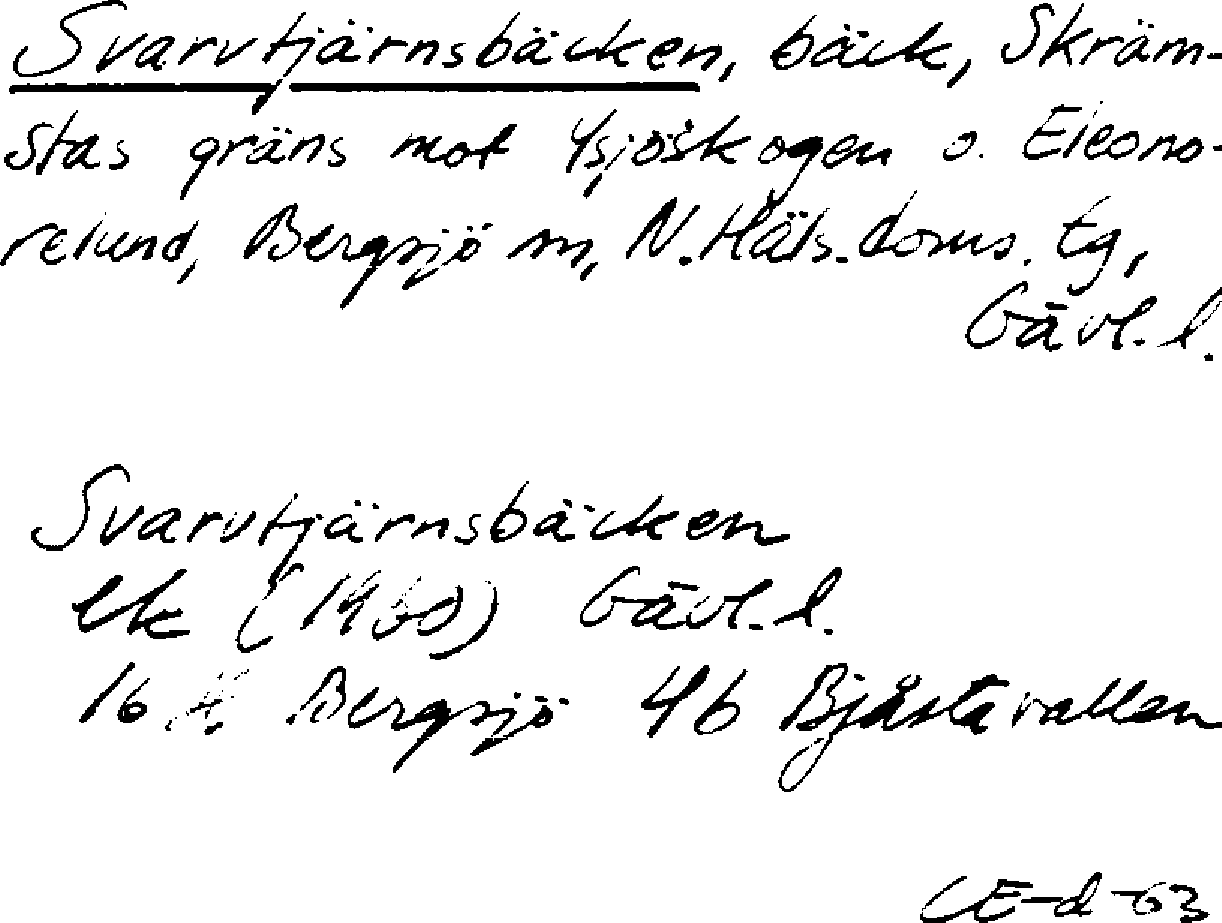 Svarvtjärnsbäcken, bäck, Skräm-
stas gräns mot Ysjöskogen o. Eleono-
relund, Bergsjö sn, N. Häls. doms. tg,
Gävl. l.
Svarvtjärnsbäcken
ek (1960) Gävl. l.
16 H Bergsjö 4b Bjåstavallen
CE-d-63